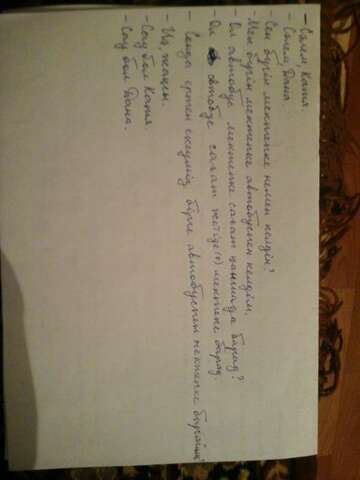 – Сәлем, Катя.
– Сәлем, Дана
– Сен бүгін мектепке немен келдің?
– Мен бүгін мектепке автобуспен келдім.
– Ол автобус мектепке сағат қаншада барад?
– Ол автобус сағат жетіде (7) мектепке барад.
– Сонда ертең екеуміз бірге автобуспен мектепке барайық
– Иә, жақсы.
– Сау бол Катя
– Сау бол Дана.